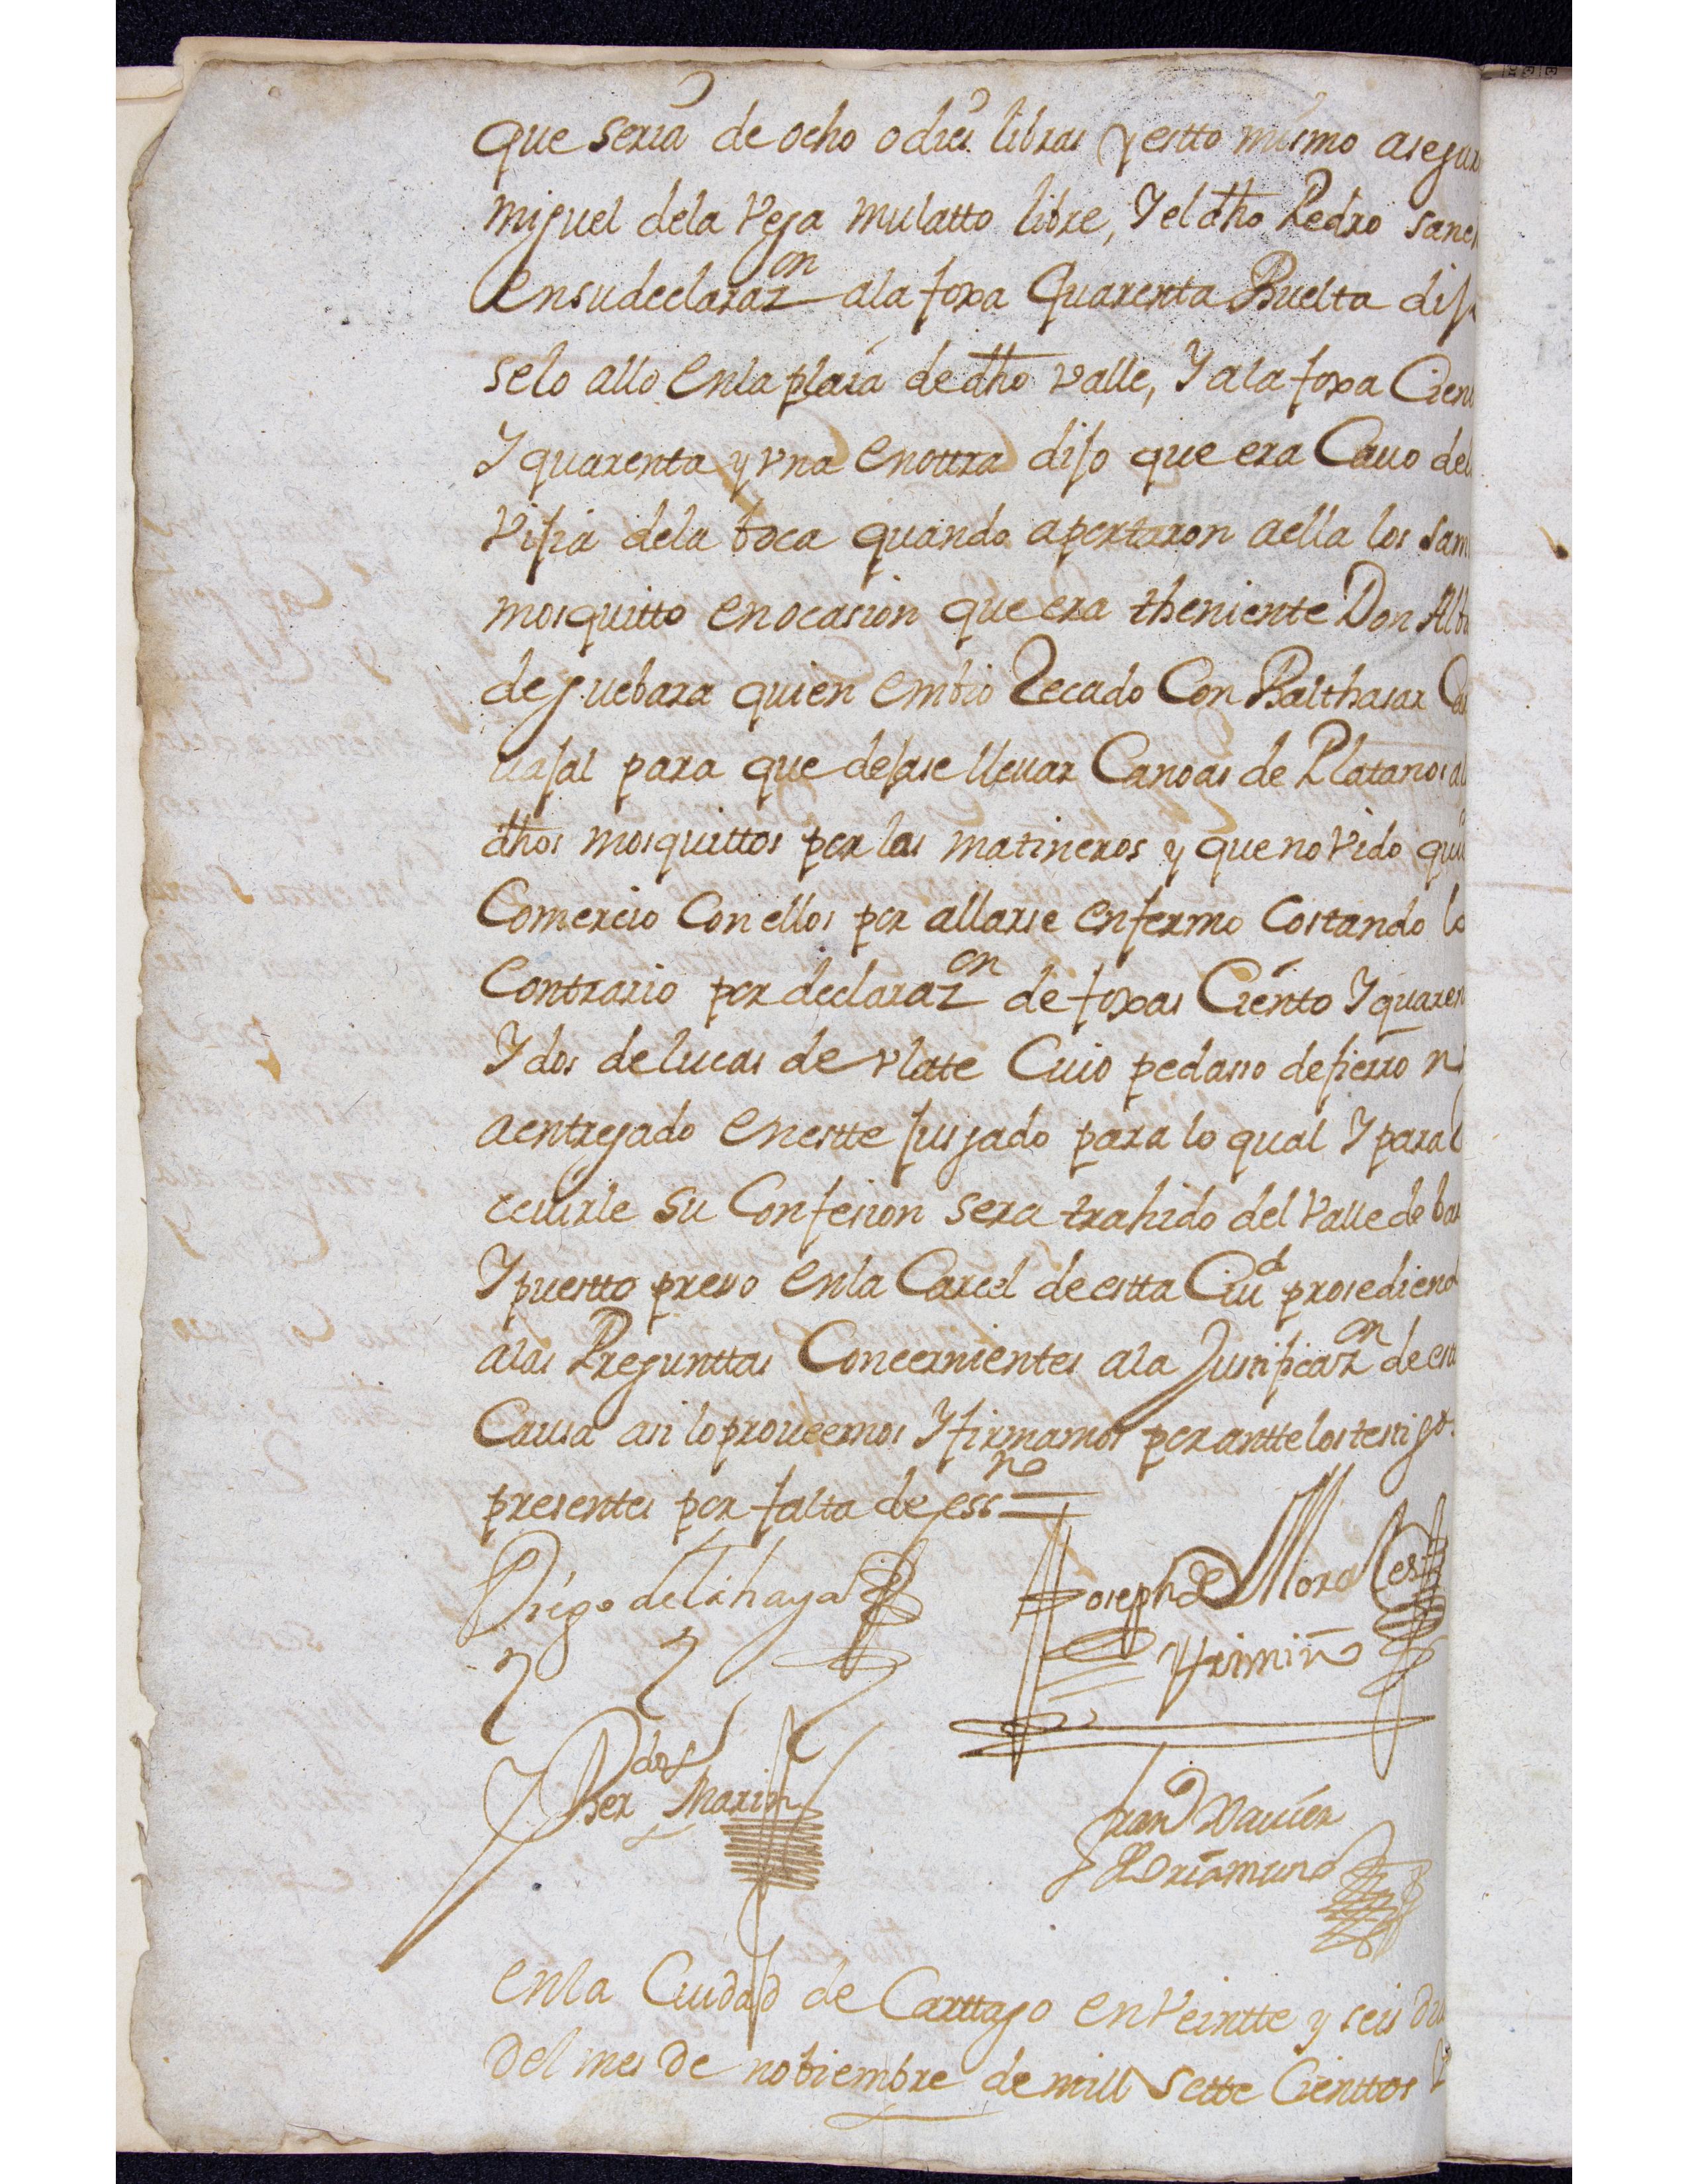 que seria de ocho o dies libras y estto mismo asegur
miguel dela Vega mulatto libre, Y el dho Pedro sanch
en su declaraz.on ala foxa quarenta Buelta dijo
selo allo en la plaia de dho valle, Y ala foxa Cient
Y quarenta y vna en ottra dijo que era Cauo dela
Vijia dela boca quando aportaron a ella los sam
mosquitto en ocasion que era theniente Don Alb
de guebara quien embio Recado Con Balthasar Car
uajal para que dejase lleuar Canoas de Platanos a
dhos mosquittos por los matineros y que no vido qui
Comercio Con ellos por allarse enfermo Costando lo
Contrario por declaraz.on de foxas Ciento Y quaren
Y dos de lucas de vlatte Cuio pedaso de fierro n
a entregado en estte jusgado para lo qual Y para
reciuirle su Confesion sera trahido del Valle de bar
Y puestto preso en la Carcel de estta Ciu.d prosediend
alas Pregunttas Concernientes ala Justificaz.on de est
Causa asi lo proueemos Y firmamos por antte los testigos
presentes por falta de ess.no =
Diego dela haya
Joseph de Morales
Ber.do Marin
Fran.co Xauier
Oriamuno
en la Ciudad de Carttago en Veintte y seis dia
del mes de nobiembre de mill Sette Cienttos